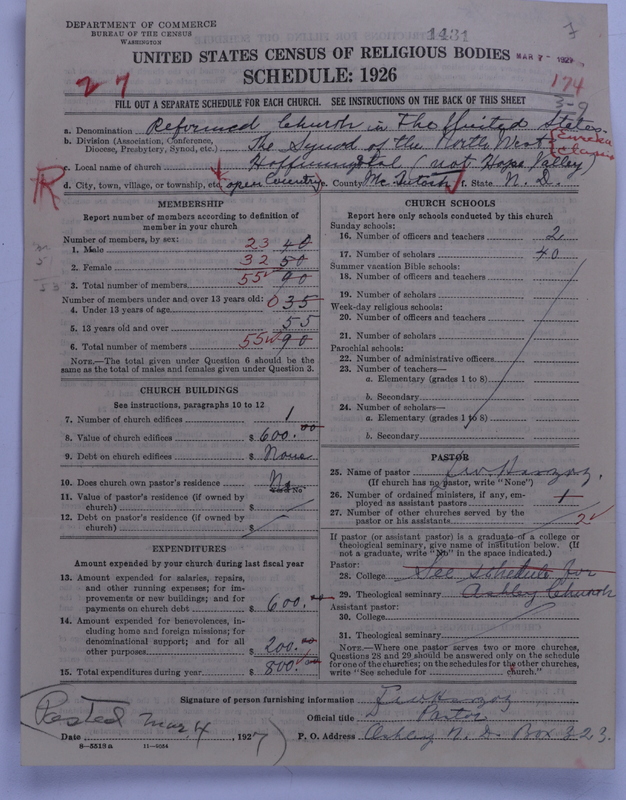 DEPARTMENT OF COMMERCE
BUREAU OF THE CENSUS
WASHINGTON
1431
UNITED STATES CENSUS OF RELIGIOUS BODIES
MAR 7 - 1927
SCHEDULE: 1926
27
174
3-9
FILL OUT A SEPARATE SCHEDULE FOR EACH CHURCH. SEE INSTRUCTIONS ON THE BACK OF THIS SHEET
a. Denomination Reformed Church in The United States
b. Division (Association, Conference, Diocese, Presbytery, Synod, etc.) The Synod of the North West
Eureka
Classis
c. Local name of church Hoffnungstal (not Hope Valley)
R
d. City, town, village, or township, etc. open Country e. County Mc Intosh f. State N. D.
MEMBERSHIP
Report number of members according to definition of member in your church
Number of members, by sex:
1. Male 23 40
2. Female 32 50
3. Total number of members 55 90
Number of members under and over 13 years old:
4. Under 13 years of age 0 35
5. 13 years old and over 55
6. Total number of members 55 90
NOTE.—The total given under Question 6 should be the same as the total of males and females given under Question 3.
CHURCH BUILDINGS
See instructions, paragraphs 10 to 12
7. Number of church edifices 1
8. Value of church edifices $ 600.00
9. Debt on church edifices $ None
10. Does church own pastor's residence No
11. Value of pastor's residence (if owned by church) $
12. Debt on pastor's residence (if owned by church) $
EXPENDITURES
Amount expended by your church during last fiscal year
13. Amount expended for salaries, repairs, and other running expenses; for improvements or new buildings; and for payments on church debt $ 600.00
14. Amount expended for benevolences, including home and foreign missions; for denominational support; and for all other purposes $ 200.00
15. Total expenditures during year $ 800.00
CHURCH SCHOOLS
Report here only schools conducted by this church
Sunday schools:
16. Number of officers and teachers 2
17. Number of scholars 40
Summer vacation Bible schools:
18. Number of officers and teachers
19. Number of scholars
Week-day religious schools:
20. Number of officers and teachers
21. Number of scholars
Parochial schools:
22. Number of administrative officers
23. Number of teachers—
a. Elementary (grades 1 to 8)
b. Secondary
24. Number of scholars—
a. Elementary (grades 1 to 8)
b. Secondary
PASTOR
25. Name of pastor
(If church has no pastor, write "None")
26. Number of ordained ministers, if any, employed as assistant pastors 1
27. Number of other churches served by the pastor or his assistants 2
If pastor (or assistant pastor) is a graduate of a college or theological seminary, give name of institution below. (If not a graduate, write "No" in the space indicated.)
Pastor:
28. College See schedule for
29. Theological seminary Ashley Church
Assistant pastor:
30. College
31. Theological seminary
NOTE.—Where one pastor serves two or more churches, Questions 28 and 29 should be answered only on the schedule for one of the churches; on the schedules for the other churches, write "See schedule for church."
Signature of person furnishing information
Official title Pastor
Posted Mar. 4
Date 1927
P. O. Address Ashley N. D. Box 323.
8-5513a 11-9034